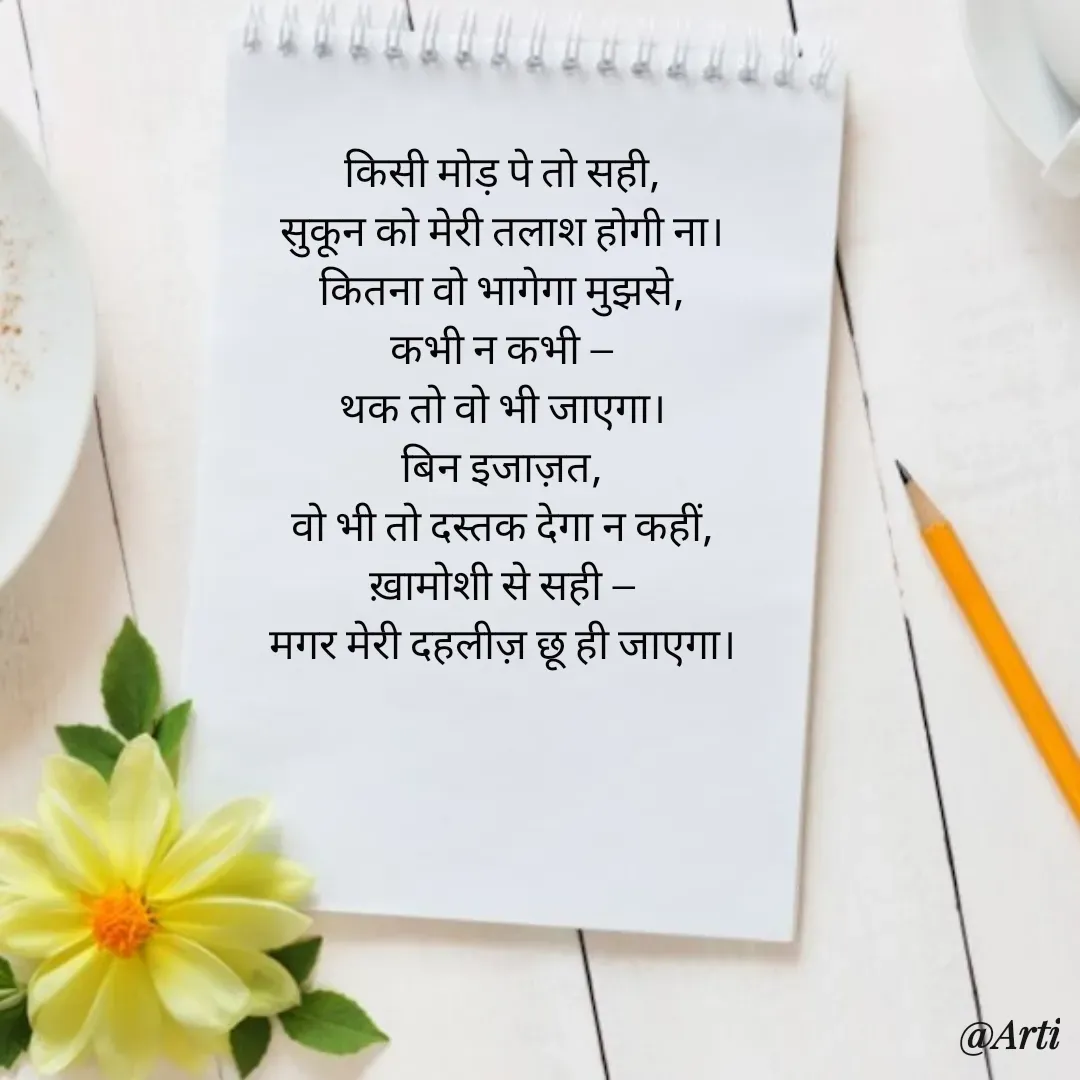 किसी मोड़ पे तो सही,
सुकून को मेरी तलाश होगी ना।
कितना वो भागेगा मुझसे,
कभी न कभी –
थक तो वो भी जाएगा।
बिन इजाज़त,
वो भी तो दस्तक देगा न कहीं,
ख़ामोशी से सही –
मगर मेरी दहलीज़ छू ही जाएगा।
@Arti